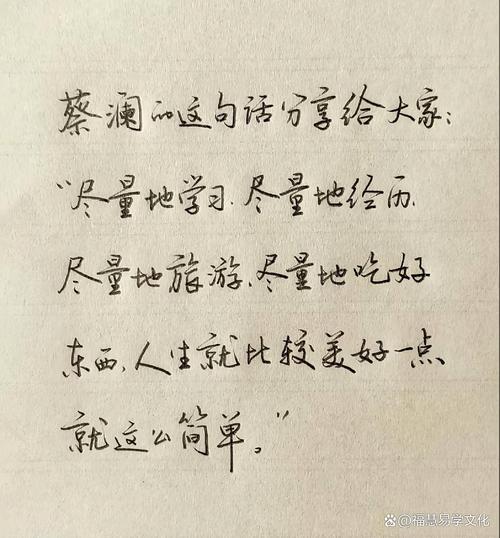 蔡澜的这句话分享给大家：
“尽量地学习、尽量地经历、
尽量地旅游、尽量地吃好
东西、人生就比较美好一点
就这么简单。”
@福慧易学文化